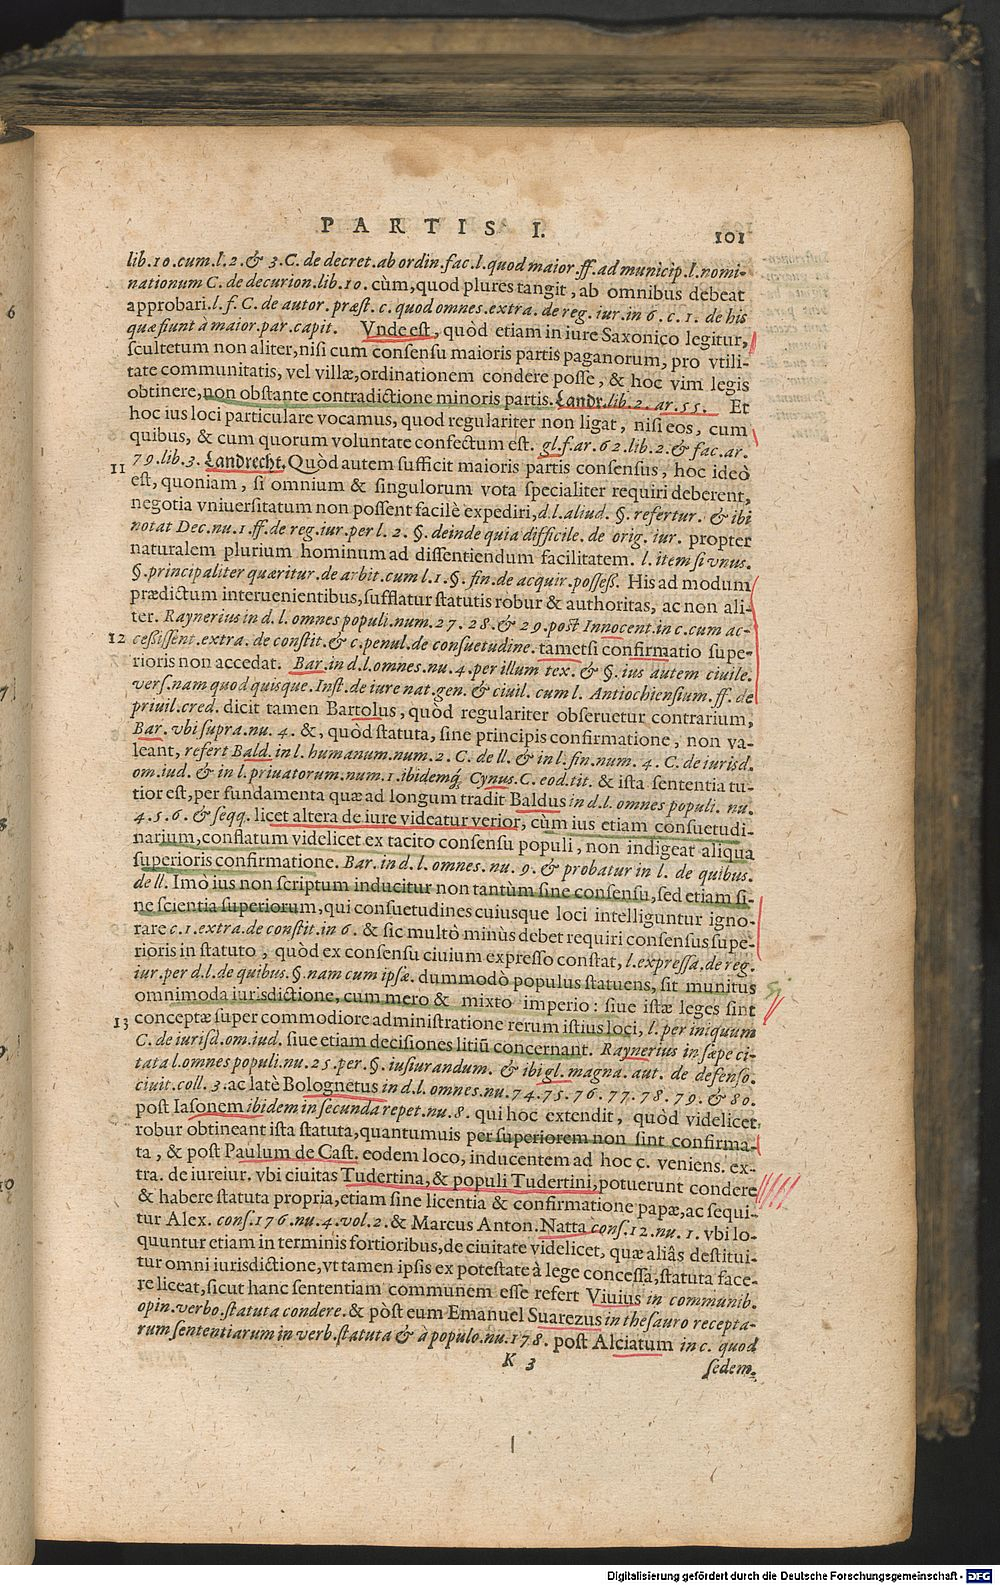 PARTIS I. 101
lib.10.cum.l.2.& 3.C. de decret.ab ordin.fac.l.quod maior.ff.ad municip.l.nomi-
nationum C. de decurion.lib.10. cùm,quod plures tangit, ab omnibus debeat
approbari.l.f.C. de autor. præst. c. quod omnes.extra. de reg. iur.in 6. c. 1. de his
quæ fiunt à maior.par.capit. Vnde est, quòd etiam in iure Saxonico legitur,
scultetum non aliter,nisi cum consensu maioris partis paganorum, pro vtili-
tate communitatis, vel villæ,ordinationem condere posse, & hoc vim legis
obtinere,non obstante contradictione minoris partis.Landr.lib.2. ar.55. Et
hoc ius loci particulare vocamus, quod regulariter non ligat, nisi eos, cum
quibus, & cum quorum voluntate confectum est. gl.f.ar.62.lib.2.& fac.ar.
79.lib.3. Landrecht. Quòd autem sufficit maioris partis consensus, hoc ideò
11 est, quoniam, si omnium & singulorum vota specialiter requiri deberent,
negotia vniuersitatum non possent facilè expediri,d.l.aliud. §. refertur. & ibi
notat Dec.nu.1.ff.de reg.iur.per l. 2. §. deinde quia difficile. de orig. iur. propter
naturalem plurium hominum ad dissentiendum facilitatem. l. item si vnus.
§.principaliter quæritur.de arbit.cum l.1.§. fin.de acquir.posses. His ad modum
prædictum interuenientibus,sufflatur statutis robur & authoritas, ac non ali-
ter. Raynerius in d.l. omnes populi.num.27. 28. & 29.post Innocent.in c.cum ac-
12 cessissent.extra. de constit.& c.penul.de consuetudine. tametsi confirmatio supe-
rioris non accedat. Bar.in d.l.omnes.nu.4.per illum tex. & §. ius autem ciuile.
vers.nam quod quisque.Inst.de iure nat.gen. & ciuil. cum l. Antiochiensium. ff. de
priuil.cred. dicit tamen Bartolus, quòd regulariter obseruetur contrarium,
Bar. vbi supra.nu. 4. &, quòd statuta, sine principis confirmatione, non va-
leant, refert Bald.in l. humanum.num.2. C. de ll. & in l.fin.num. 4. C. de iurisd.
om.iud. & in l.priuatorum.num.1.ibidemq́; Cynus.C. eod.tit. & ista sententia tu-
tior est,per fundamenta quæ ad longum tradit Baldus in d.l. omnes populi. nu.
4.5.6. & seqq. licet altera de iure videatur verior, cùm ius etiam consuetudi-
narium,conflatum videlicet ex tacito consensu populi, non indigeat aliqua
superioris confirmatione. Bar.in d.l. omnes.nu. 9. & probatur in l. de quibus.
de ll. Imò ius non scriptum inducitur non tantùm sine consensu,sed etiam si-
ne scientia superiorum,qui consuetudines cuiusque loci intelliguntur igno-
rare c.1.extra.de constit.in 6. & sic multò minùs debet requiri consensus supe-
rioris in statuto, quòd ex consensu ciuium expresso constat, l.expressa.de reg.
iur.per d.l.de quibus.§.nam cum ipsæ. dummodò populus statuens, sit munitus
omnimoda iurisdictione, cum mero & mixto imperio: siue istæ leges sint
13 conceptæ super commodiore administratione rerum istius loci, l.per iniquum
C. de iurisd.om.iud. siue etiam decisiones litiũ concernant. Raynerius in sæpe ci-
tata l.omnes populi.nu.25.per.§.iusiurandum. & ibi gl.magna. aut. de defenso.
ciuit.coll. 3.ac latè Bolognetus in d.l.omnes.nu.74.75.76.77.78.79.& 80.
post Iasonem ibidem in secunda repet.nu.8. qui hoc extendit, quòd videlicet
robur obtineant ista statuta,quantumuis per superiorem non sint confirma-
ta, & post Paulum de Cast. eodem loco, inducentem ad hoc c. veniens. ex-
tra. de iureiur. vbi ciuitas Tudertina, & populi Tudertini,potuerunt condere
& habere statuta propria,etiam sine licentia & confirmatione papæ,ac sequi-
tur Alex. cons.176.nu.4.vol.2.& Marcus Anton.Natta cons.12.nu.1. vbi lo-
quuntur etiam in terminis fortioribus,de ciuitate videlicet, quæ aliâs destitui-
tur omni iurisdictione,vt tamen ipsis ex potestate à lege concessa,statuta face-
re liceat,sicut hanc sententiam communem esse refert Viuius in communib.
opin.verbo.statuta condere.& pòst eum Emanuel Suarezus in thesauro recepta-
rum sententiarum in verb.statuta & à populo.nu.178. post Alciatum in c. quod
K 3 sedem.
Digitalisierung gefördert durch die Deutsche Forschungsgemeinschaft - DFG